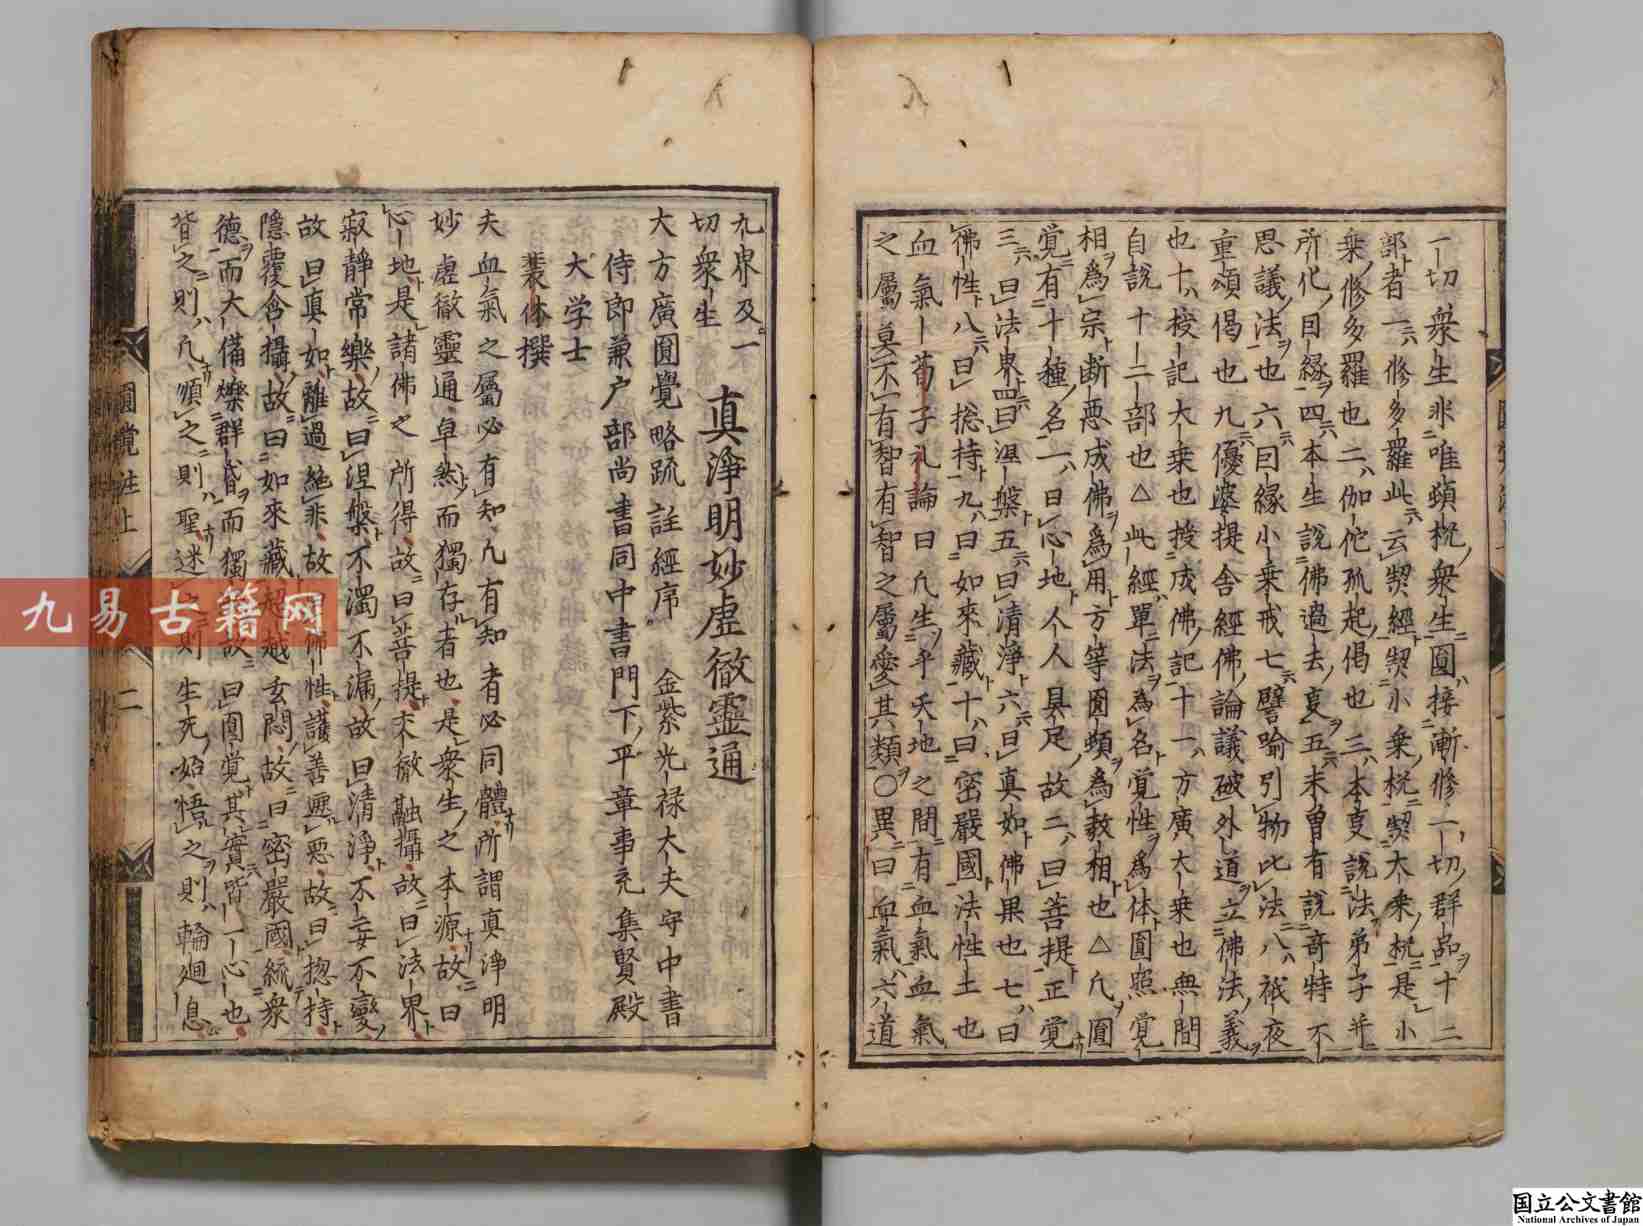 一切衆生非唯頓机衆生圓接漸修一切群品十二
部者一修多羅此云契經契小乗机契大乗机是小
乗修多羅也二伽佗孤起偈也三本夏説法弟子并
所化因縁四本生説佛過去夏五未曽有説竒特不
思議法也六曰縁小乗戒七譬喩引物此法八祇夜
重頌偈也九優婆提舎經佛論議破外道立佛法義
也十授記大乗也授成佛記十一方廣大乗也無問
自説十二部也△此經單法為名覚性為体圓照覚
相為宗断悪成佛為用方等圓頓為教相也△凢圓
覚有十種名一曰心地人人具足故二曰菩提正覚
三曰法界四曰涅槃五曰清淨六曰真如佛果也七曰
佛性八曰捴持九曰如來藏十曰密嚴國法性土也
血氣荀子礼論曰凢生乎天地之間有血氣血氣
之屬莫不有智有智之屬愛其類〇異曰血氣六道
九界及一
切衆生　真淨明妙虚徹靈通
大方廣圓覺略疏註經序　金紫光禄大夫守中書
侍郎兼户部尚書同中書門下平章事充集賢殿
大学士
裴休撰
夫血氣之屬必有知凢有知者必同體所謂真淨明
妙虚徹靈通卓然而獨存者也是衆生之本源故曰
心地是諸佛之所得故曰菩提交徹融攝故曰法界
寂靜常樂故曰涅槃不濁不漏故曰清淨不妄不變
故曰真如離過絶非故曰佛性護善遮悪故曰捴持
隠覆含攝故曰如來藏超越玄閟故曰密嚴國統衆
德而大備爍群昏而獨照故曰圓覚其實皆一心也
背之則凢順之則聖迷之則生死始悟之則輪廻息
圓覚註上
二
九易古籍网
国立公文書館
National Archives of Japan